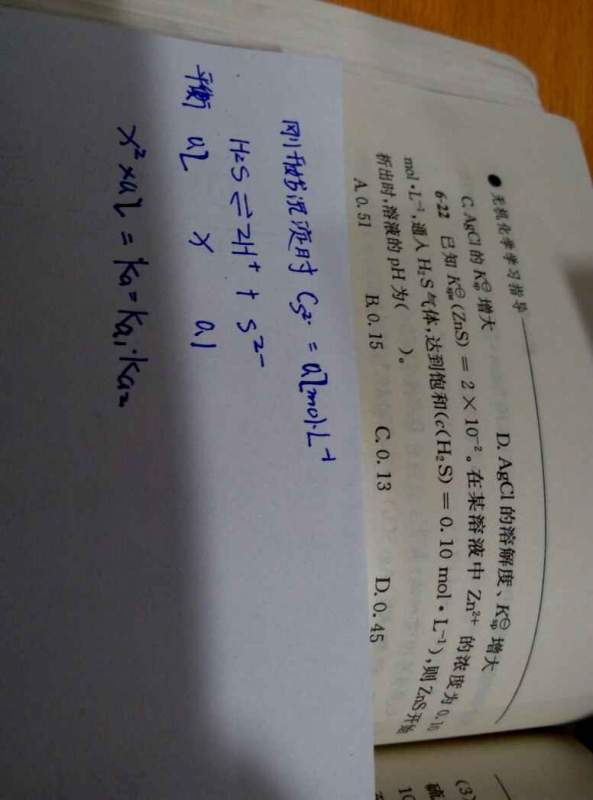 ● 无机化学学习指导
C. AgCl 的 K⊖sp 增大 D. AgCl 的溶解度、K⊖sp 增大
6-22 已知 K⊖spa(ZnS) = 2×10⁻²。在某溶液中 Zn²⁺ 的浓度为 0.10
mol·L⁻¹,通入 H₂S 气体,达到饱和(c(H₂S) = 0.10 mol·L⁻¹),则 ZnS 开始
析出时,溶液的 pH 为( )。
A. 0.51 B. 0.15 C. 0.13 D. 0.45
刚开始沉淀时 Cs²⁻ = 0.2 mol·L⁻¹
H₂S ⇌ 2H⁺ + S²⁻
平衡 0.2 x 0.1
x² × 0.2 = Ka = Ka₁·Ka₂
(3)
硫
10